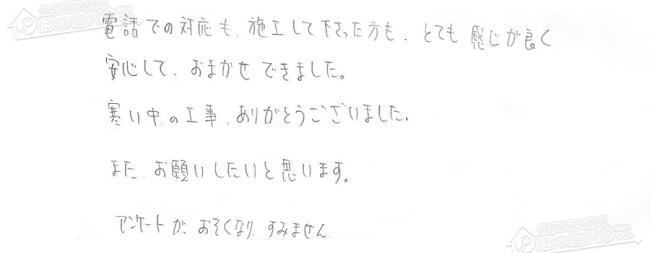 電話での対応も、施工して下さった方も、とても感じが良く
安心して、おまかせできました。
寒い中の工事、ありがとうございました。
また、お願いしたいと思います。
アンケートが、おそくなり、すみません